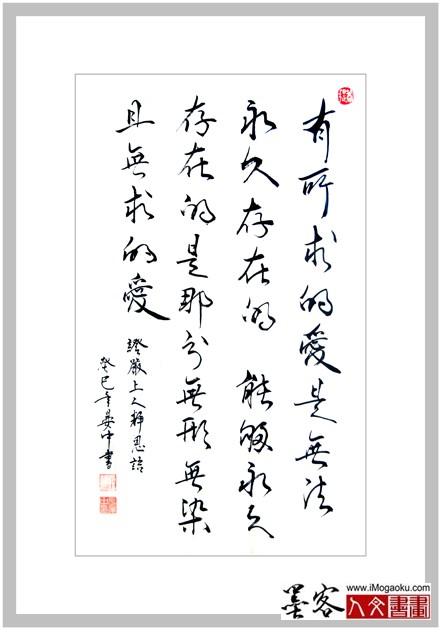 有所求的愛是無法
永久存在的 能夠永久
存在的是那分無形無染
且無求的愛
證嚴上人靜思語
癸巳年晏中書
墨客
www.iMogaoku.com
人文書畫